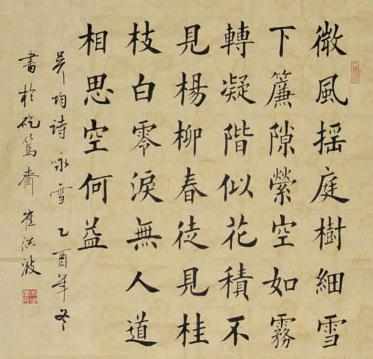 微風揺庭樹細雪
下簾隙縈空如霧
轉凝階似花積不
見楊柳春徒見桂
枝白零淚無人道
相思空何益
吳均詩詠雪乙酉年冬
書於仡篤齋崔洪波